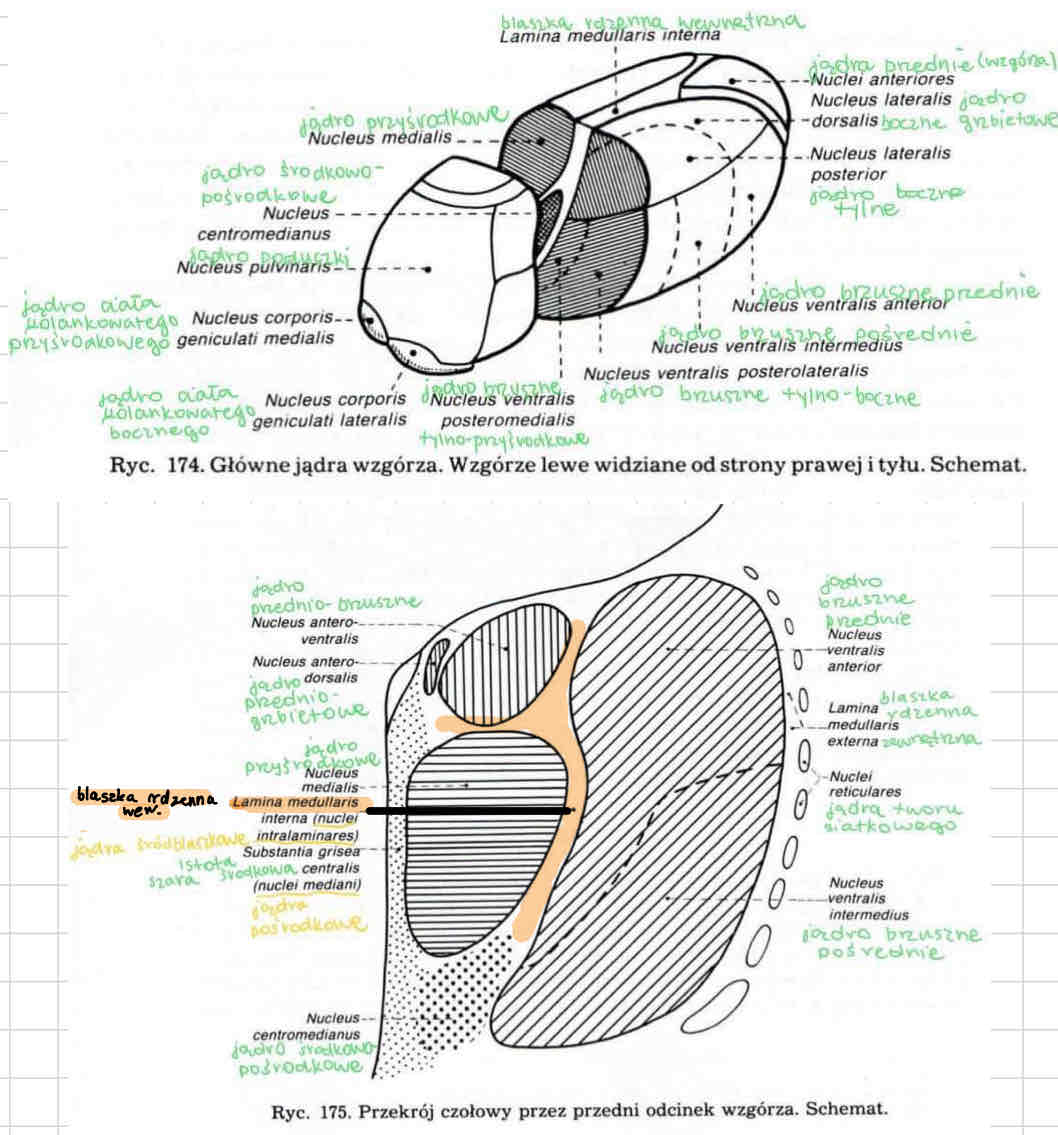 blaszka rdzenna wewnętrzna
Lamina medullaris interna
jądra przednie (wzgórza)
Nuclei anteriores
Nucleus lateralis jądro
dorsalis boczne grzbietowe
jądro przyśrodkowe
Nucleus medialis
Nucleus lateralis
posterior
jądro boczne
tylne
jądro środkowo-
pośrodkowe
Nucleus
centromedianus
jądro poduszki
Nucleus pulvinaris
jądro brzuszne przednie
Nucleus ventralis anterior
jądro ciała
kolankowatego
przyśrodkowego
Nucleus corporis
geniculati medialis
jądro brzuszne pośrednie
Nucleus ventralis intermedius
Nucleus ventralis posterolateralis
jądro brzuszne tylno-boczne
jądro ciała
kolankowatego
bocznego
Nucleus corporis
geniculati lateralis
jądro brzuszne
Nucleus ventralis
posteromedialis
tylno-przyśrodkowe
Ryc. 174. Główne jądra wzgórza. Wzgórze lewe widziane od strony prawej i tyłu. Schemat.
jądro
przednio-brzuszne
Nucleus antero-
ventralis
Nucleus antero-
dorsalis
jądro
przednio-
grzbietowe
jądro
przyśrodkowe
Nucleus
medialis
blaszka rdzenna
wew.
Lamina medullaris
interna (nuclei
intralaminares)
jądra śródblaszkowe
Substantia grisea
centralis
(nuclei mediani)
istota
szara środkowa
jądra
pośrodkowe
Nucleus
centromedianus
jądro środkowo-
pośrodkowe
jądro
brzuszne
przednie
Nucleus
ventralis
anterior
Lamina
medullaris
externa
blaszka
rdzenna
zewnętrzna
Nuclei
reticulares
jądra tworu
siatkowego
Nucleus
ventralis
intermedius
jądro brzuszne
pośrednie
Ryc. 175. Przekrój czołowy przez przedni odcinek wzgórza. Schemat.